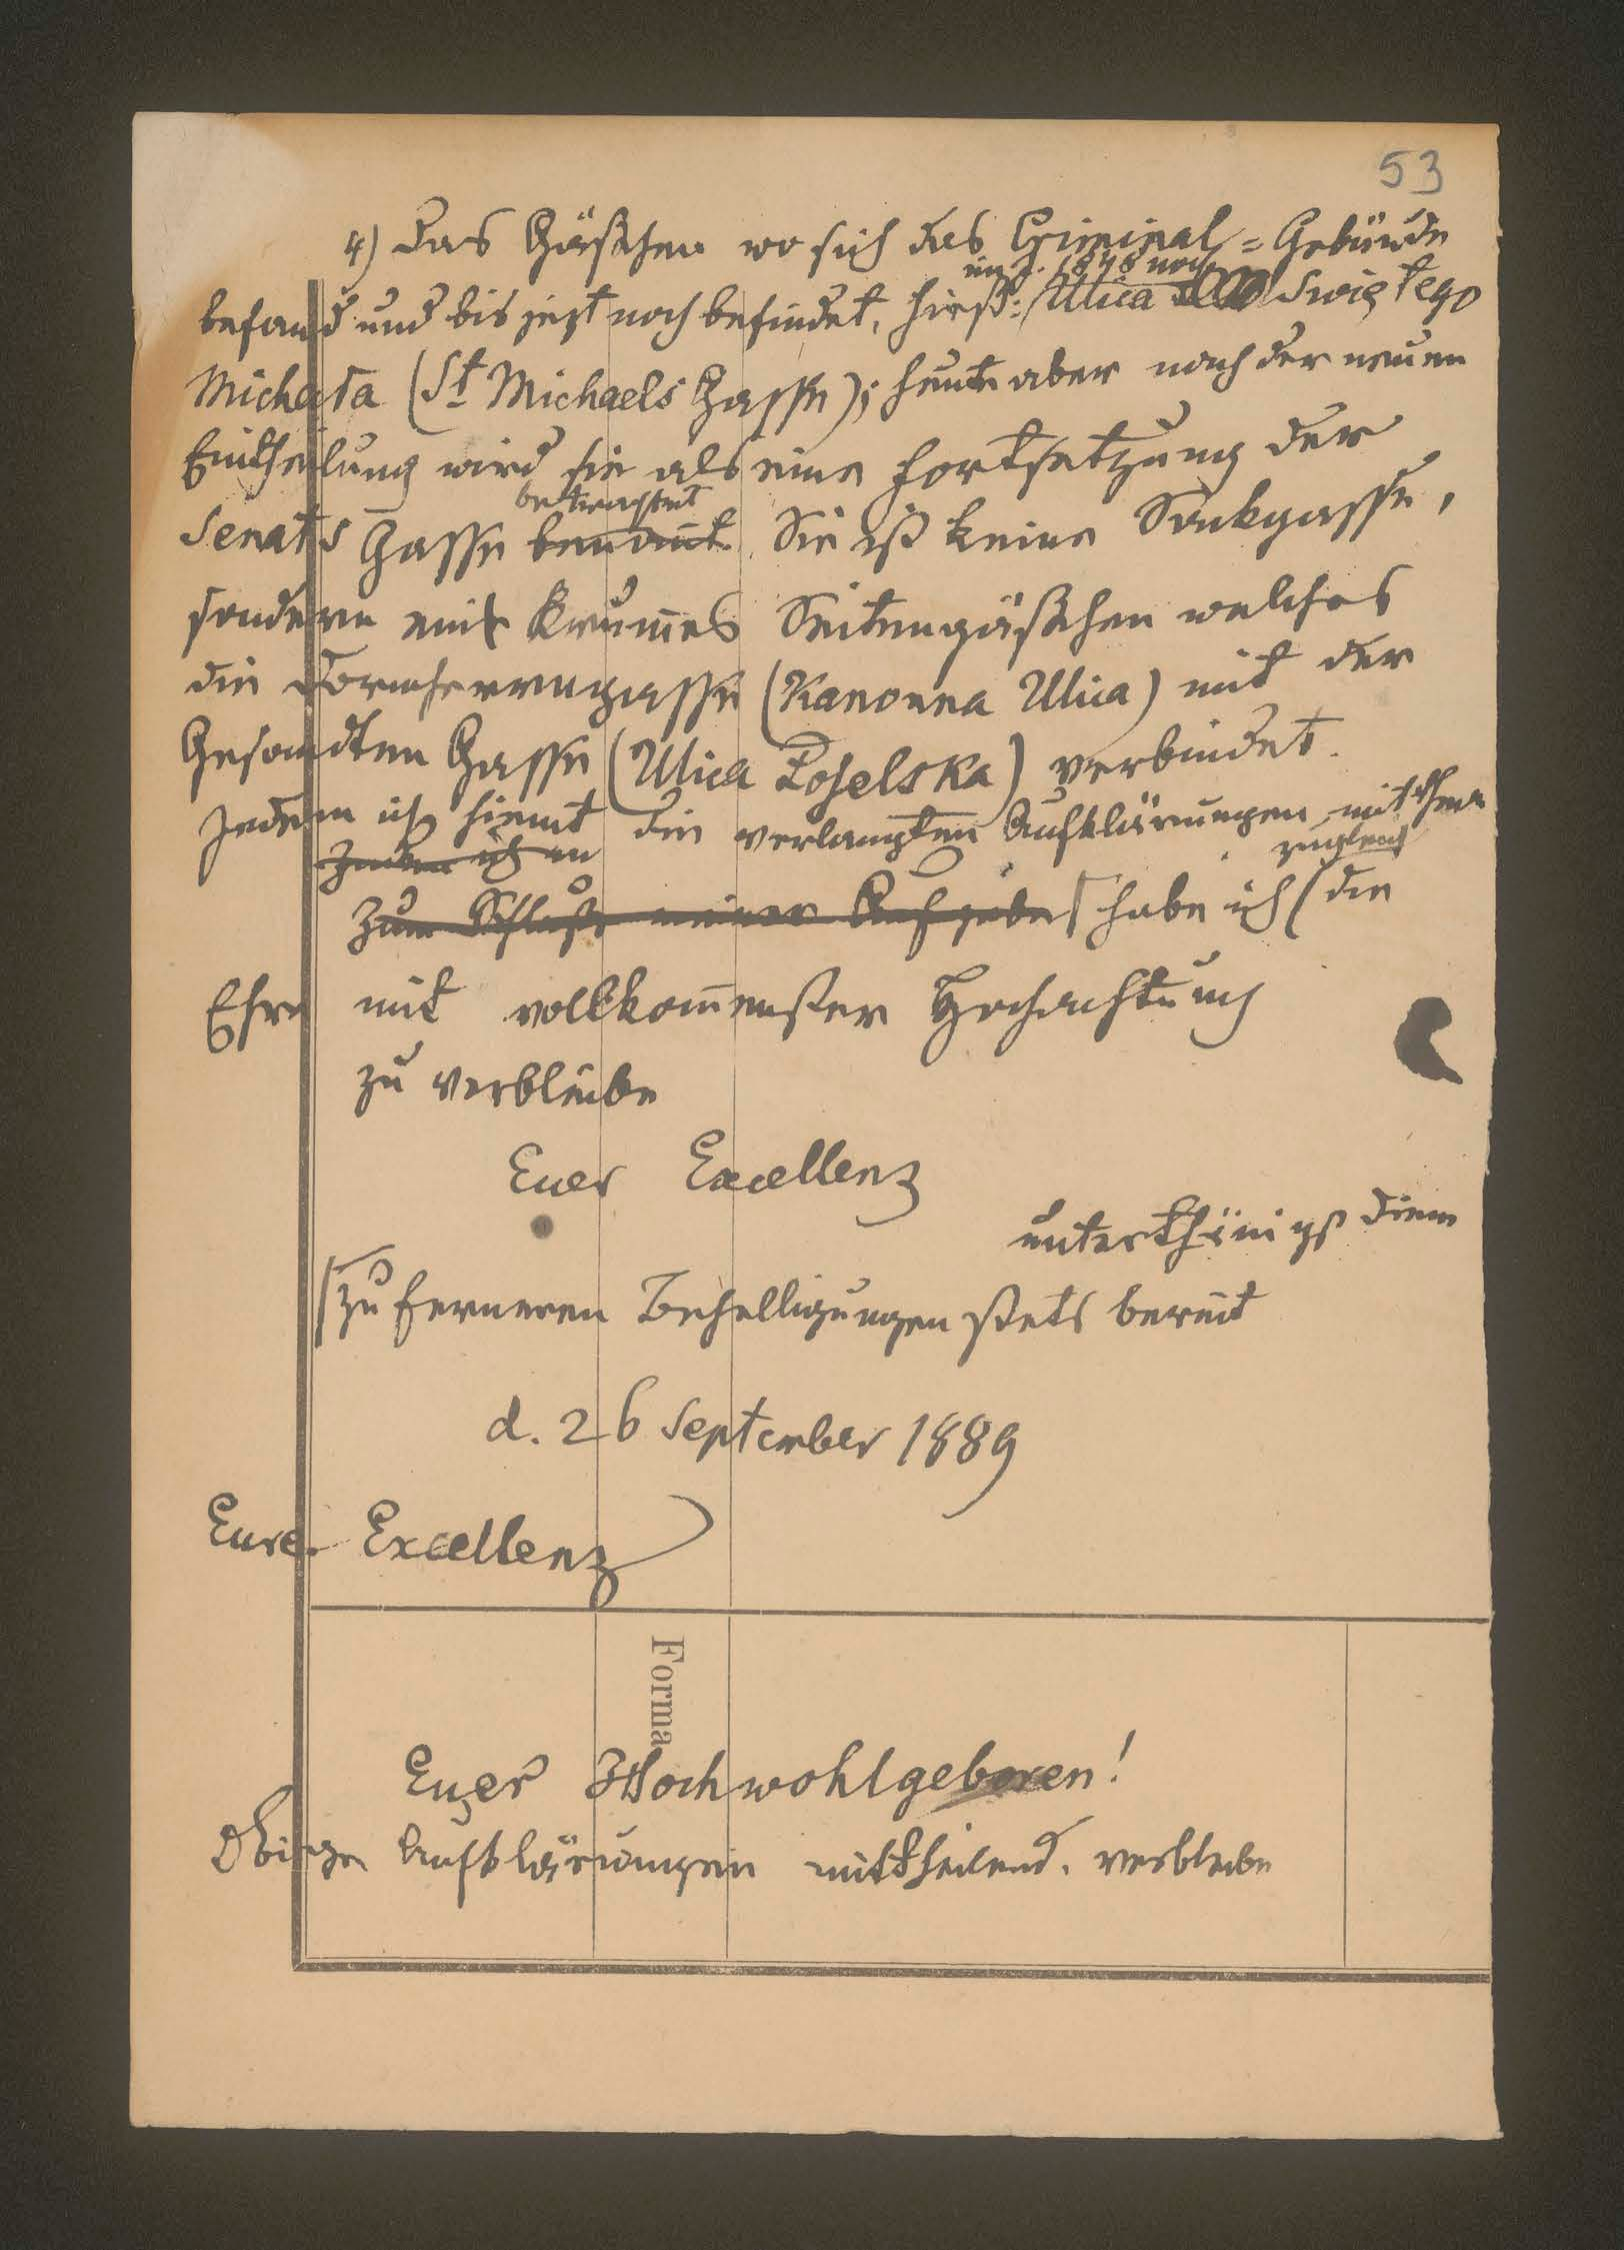 53
4) Das Gäßchen wo sich das Criminal-Gebäude
im J. 1848 noch
befand und bis jezt noch befindet, hieß: Ulica Swiętego
Michała (St Michaels Gasse); heute aber nach der neuen
Eintheilung wird sie als eine Fortsetzung der
betrachtet
Senats Gasse benannt. Sie ist keine Sackgasse,
sondern ein krum̄es Seitengäßchen welches
die Domherrengasse (Kanonna Ulica) mit der
Gesandten Gasse (Ulica Poselska) verbindet.
Indem ich hiemit die verlangten Aufklärungen mittheile
Indem ich
zugleich
Zum Schluße meiner Aufgabe habe ich die
Ehre mit vollkom̄enster Hochachtung
zu verbleibe
Euer Excellenz
unterthänigst
zu ferneren Behelligungen stets bereit
d. 26 September 1889
Eure Excellenz
Forma
Euer Hochwohlgeboren!
Obige Aufklärungen mittheilend. verbleibe